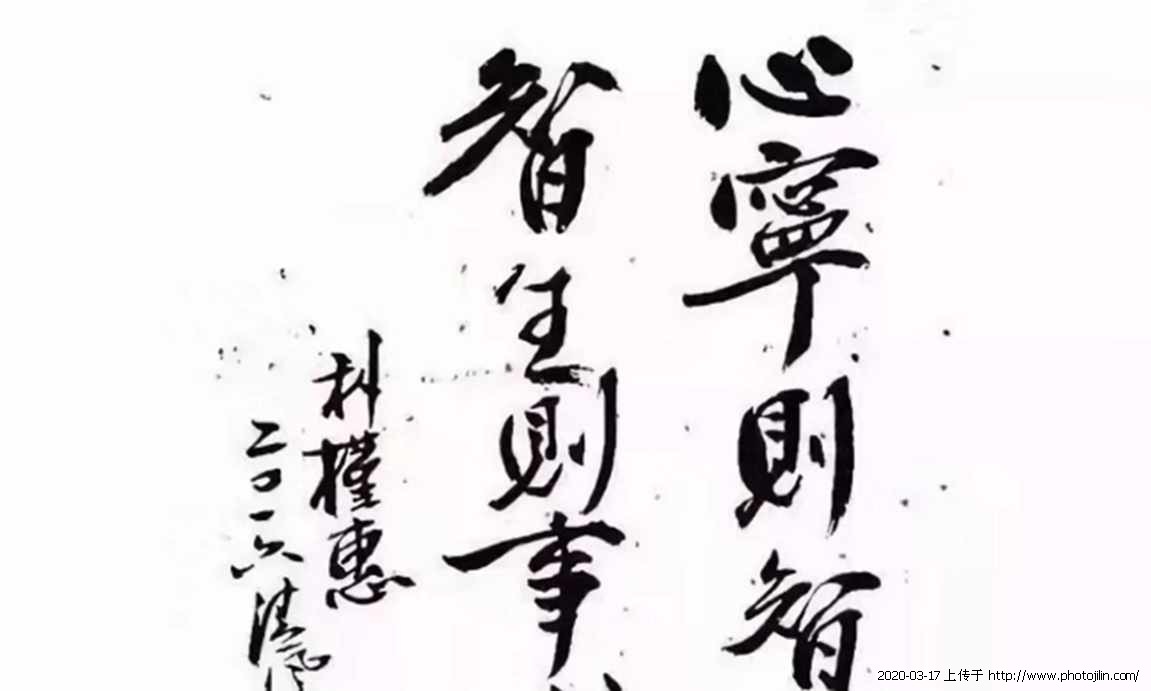 心寧則智
智生則事
朴槿惠
二〇一六
2020-03-17 上传于 http://www.photojilin.com/